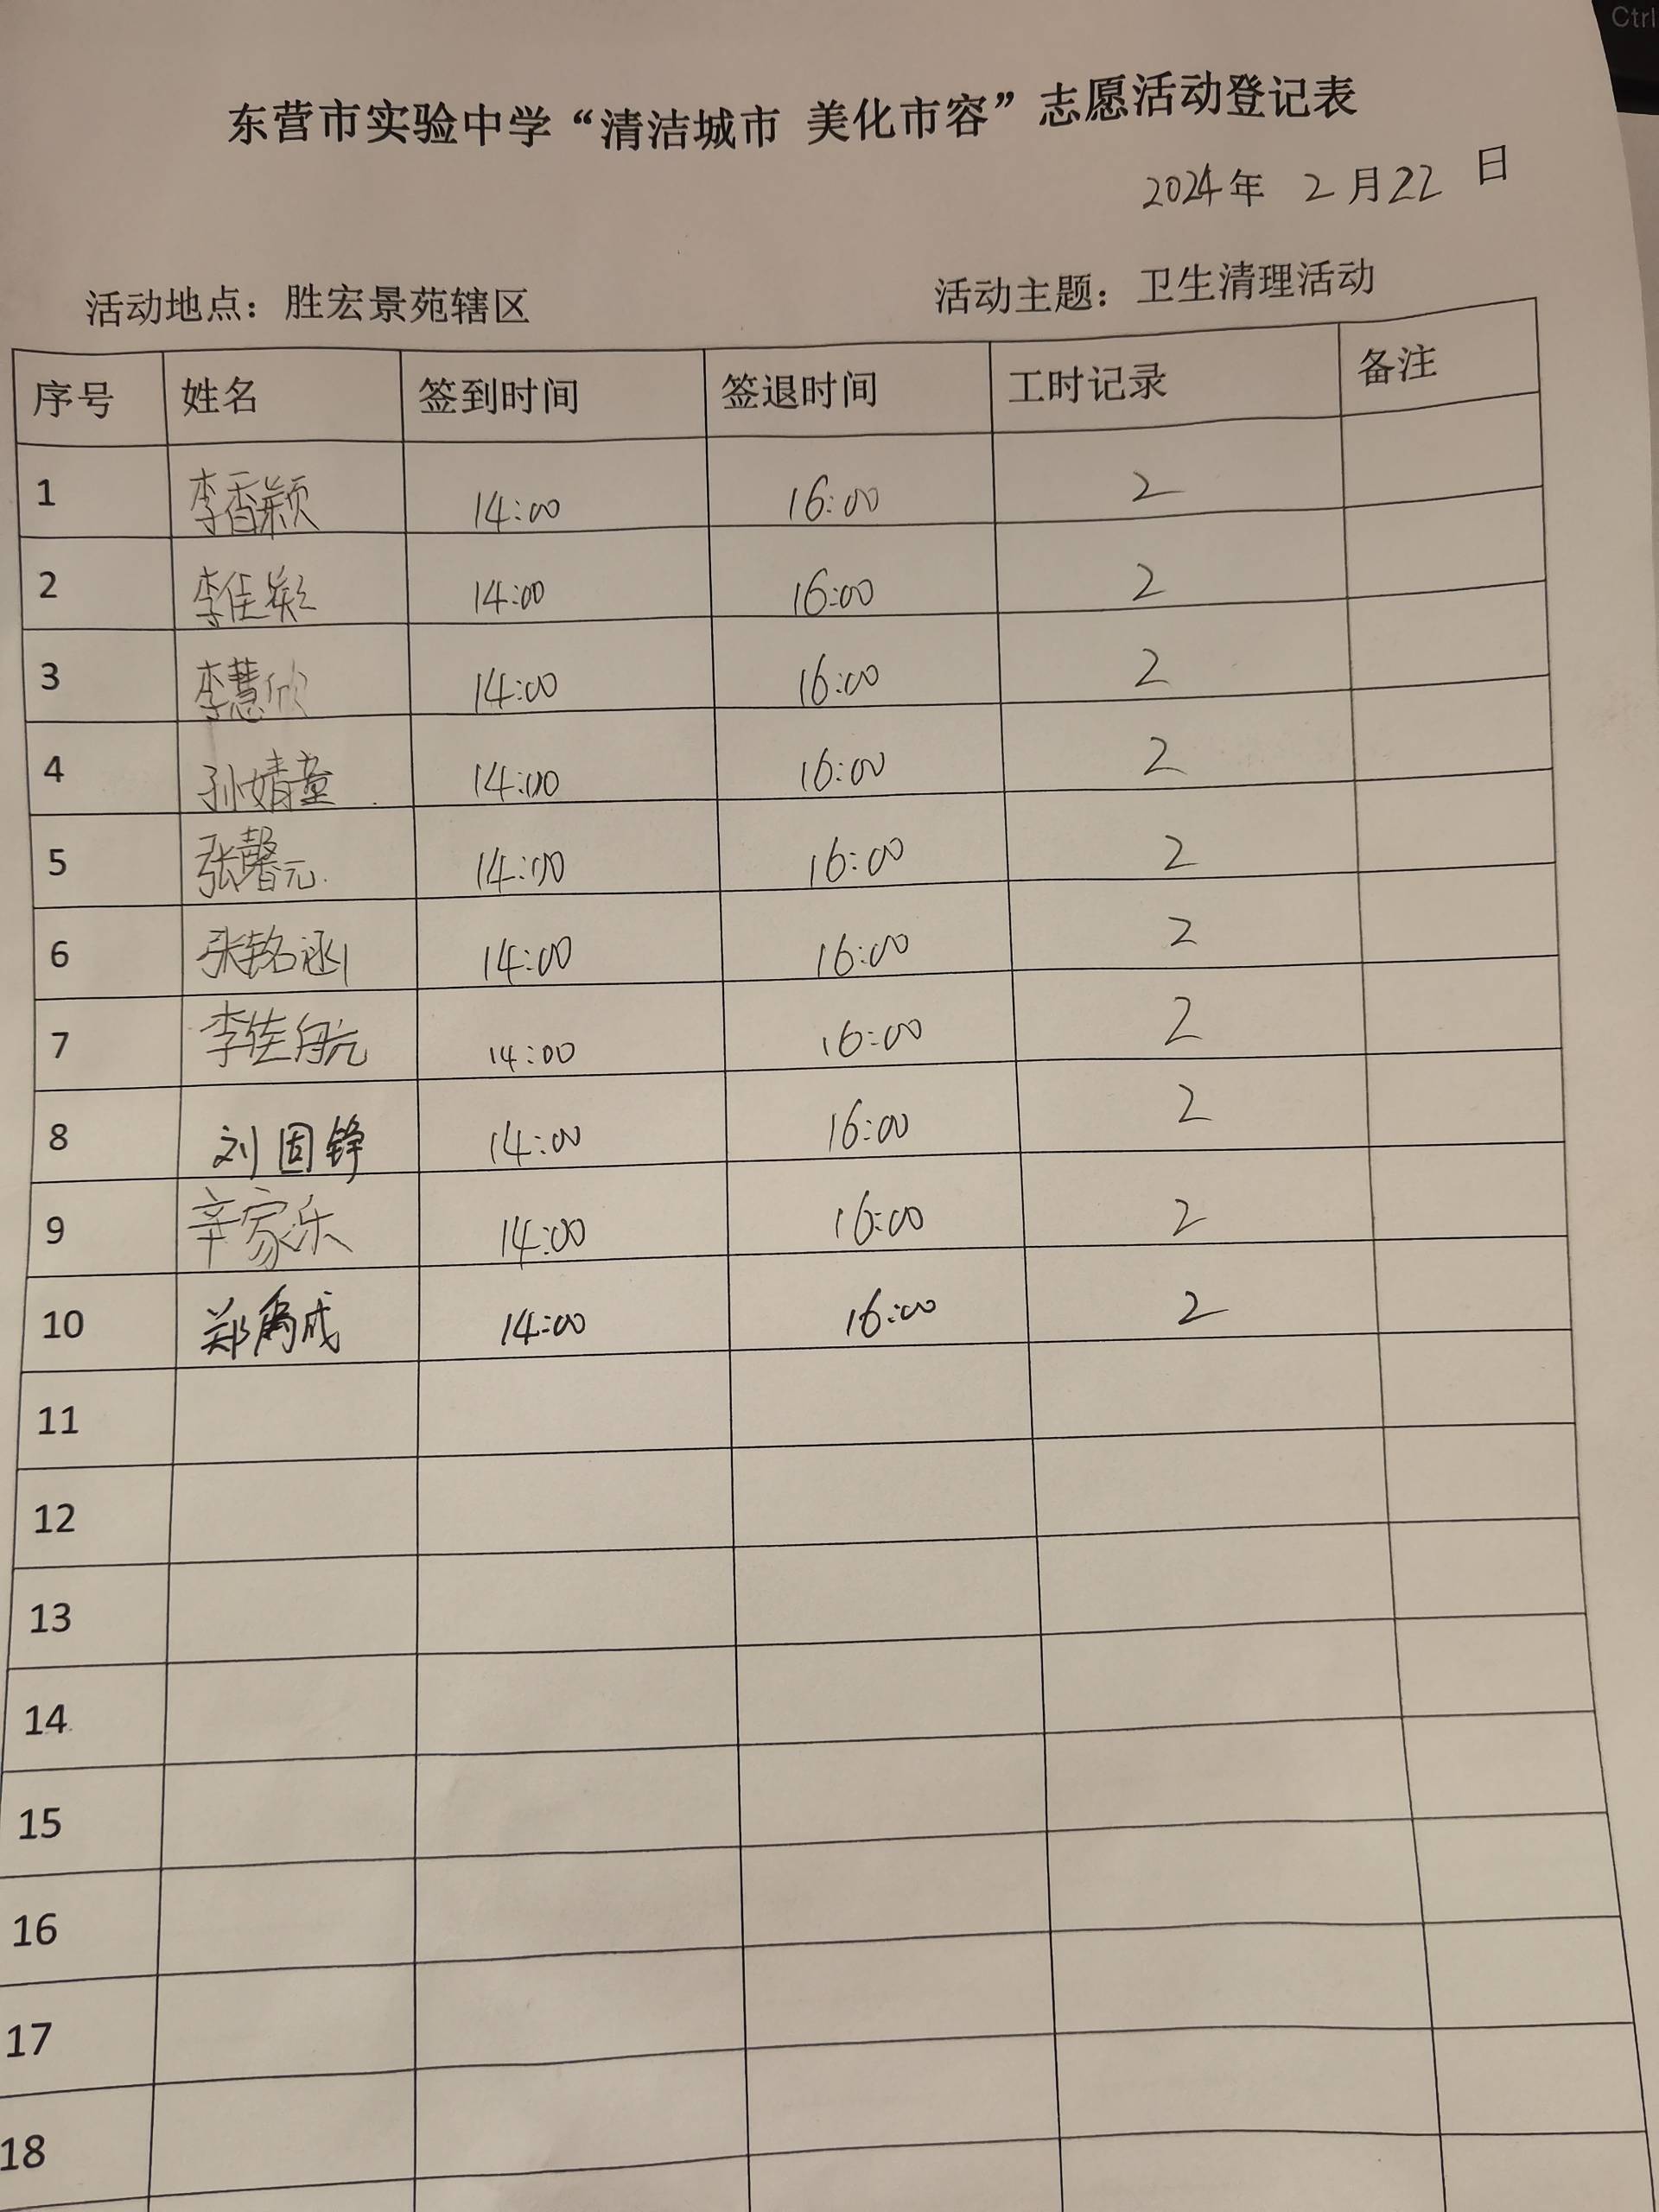 Ctrl
东营市实验中学“清洁城市 美化市容”志愿活动登记表
2024年 2月22日
活动地点：胜宏景苑辖区 活动主题：卫生清理活动
序号 姓名 签到时间 签退时间 工时记录 备注
1 李香颖 14:00 16:00 2
2 李佳 14:00 16:00 2
3 李慧欣 14:00 16:00 2
4 孙婧童 14:00 16:00 2
5 张馨元 14:00 16:00 2
6 张铭涵 14:00 16:00 2
7 李佳航 14:00 16:00 2
8 刘固铮 14:00 16:00 2
9 辛家乐 14:00 16:00 2
10 郑禹成 14:00 16:00 2
11
12
13
14
15
16
17
18